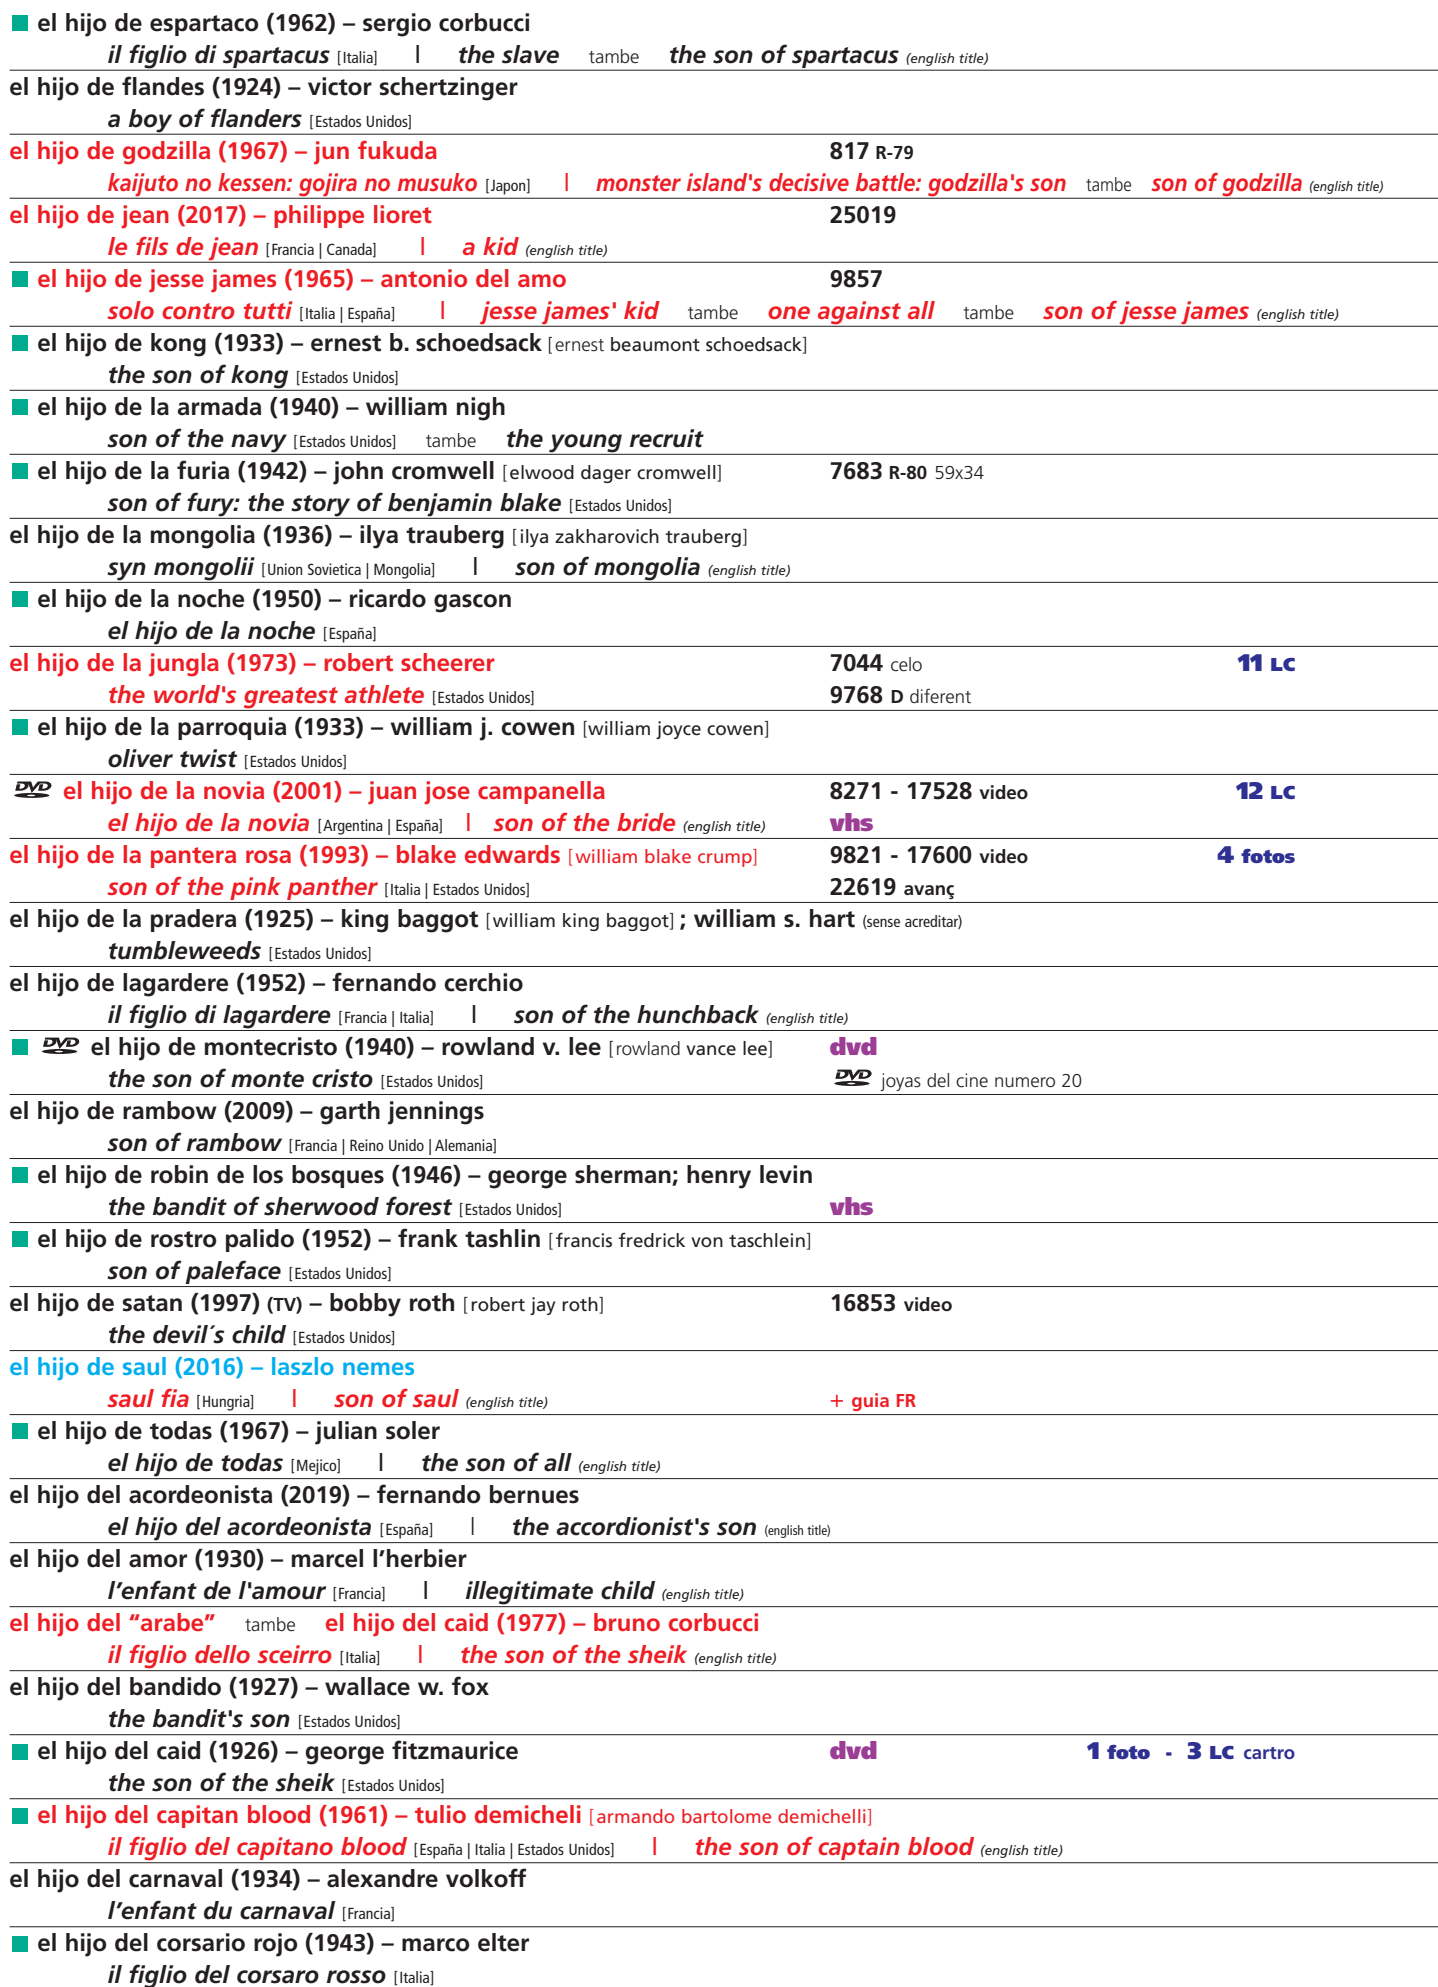 el hijo de espartaco (1962) – sergio corbucci
il figlio di spartacus [Italia] | the slave tambe the son of spartacus (english title)
el hijo de flandes (1924) – victor schertzinger
a boy of flanders [Estados Unidos]
el hijo de godzilla (1967) – jun fukuda 817 R-79
kaijuto no kessen: gojira no musuko [Japon] | monster island's decisive battle: godzilla's son tambe son of godzilla (english title)
el hijo de jean (2017) – philippe lioret 25019
le fils de jean [Francia | Canada] | a kid (english title)
el hijo de jesse james (1965) – antonio del amo 9857
solo contro tutti [Italia | España] | jesse james' kid tambe one against all tambe son of jesse james (english title)
el hijo de kong (1933) – ernest b. schoedsack [ernest beaumont schoedsack]
the son of kong [Estados Unidos]
el hijo de la armada (1940) – william nigh
son of the navy [Estados Unidos] tambe the young recruit
el hijo de la furia (1942) – john cromwell [elwood dager cromwell] 7683 R-80 59x34
son of fury: the story of benjamin blake [Estados Unidos]
el hijo de la mongolia (1936) – ilya trauberg [ilya zakharovich trauberg]
syn mongolii [Union Sovietica | Mongolia] | son of mongolia (english title)
el hijo de la noche (1950) – ricardo gascon
el hijo de la noche [España]
el hijo de la jungla (1973) – robert scheerer 7044 celo 11 LC
the world's greatest athlete [Estados Unidos] 9768 D diferent
el hijo de la parroquia (1933) – william j. cowen [william joyce cowen]
oliver twist [Estados Unidos]
DVD el hijo de la novia (2001) – juan jose campanella 8271 - 17528 video 12 LC
el hijo de la novia [Argentina | España] | son of the bride (english title) vhs
el hijo de la pantera rosa (1993) – blake edwards [william blake crump] 9821 - 17600 video 4 fotos
son of the pink panther [Italia | Estados Unidos] 22619 avanç
el hijo de la pradera (1925) – king baggot [william king baggot] ; william s. hart (sense acreditar)
tumbleweeds [Estados Unidos]
el hijo de lagardere (1952) – fernando cerchio
il figlio di lagardere [Francia | Italia] | son of the hunchback (english title)
DVD el hijo de montecristo (1940) – rowland v. lee [rowland vance lee] dvd
the son of monte cristo [Estados Unidos] DVD joyas del cine numero 20
el hijo de rambow (2009) – garth jennings
son of rambow [Francia | Reino Unido | Alemania]
el hijo de robin de los bosques (1946) – george sherman; henry levin
the bandit of sherwood forest [Estados Unidos] vhs
el hijo de rostro palido (1952) – frank tashlin [francis fredrick von taschlein]
son of paleface [Estados Unidos]
el hijo de satan (1997) (TV) – bobby roth [robert jay roth] 16853 video
the devil´s child [Estados Unidos]
el hijo de saul (2016) – laszlo nemes
saul fia [Hungria] | son of saul (english title) + guia FR
el hijo de todas (1967) – julian soler
el hijo de todas [Mejico] | the son of all (english title)
el hijo del acordeonista (2019) – fernando bernues
el hijo del acordeonista [España] | the accordionist's son (english title)
el hijo del amor (1930) – marcel l’herbier
l’enfant de l'amour [Francia] | illegitimate child (english title)
el hijo del “arabe” tambe el hijo del caid (1977) – bruno corbucci
il figlio dello sceirro [Italia] | the son of the sheik (english title)
el hijo del bandido (1927) – wallace w. fox
the bandit's son [Estados Unidos]
el hijo del caid (1926) – george fitzmaurice dvd 1 foto - 3 LC cartro
the son of the sheik [Estados Unidos]
el hijo del capitan blood (1961) – tulio demicheli [armando bartolome demichelli]
il figlio del capitano blood [España | Italia | Estados Unidos] | the son of captain blood (english title)
el hijo del carnaval (1934) – alexandre volkoff
l’enfant du carnaval [Francia]
el hijo del corsario rojo (1943) – marco elter
il figlio del corsaro rosso [Italia]